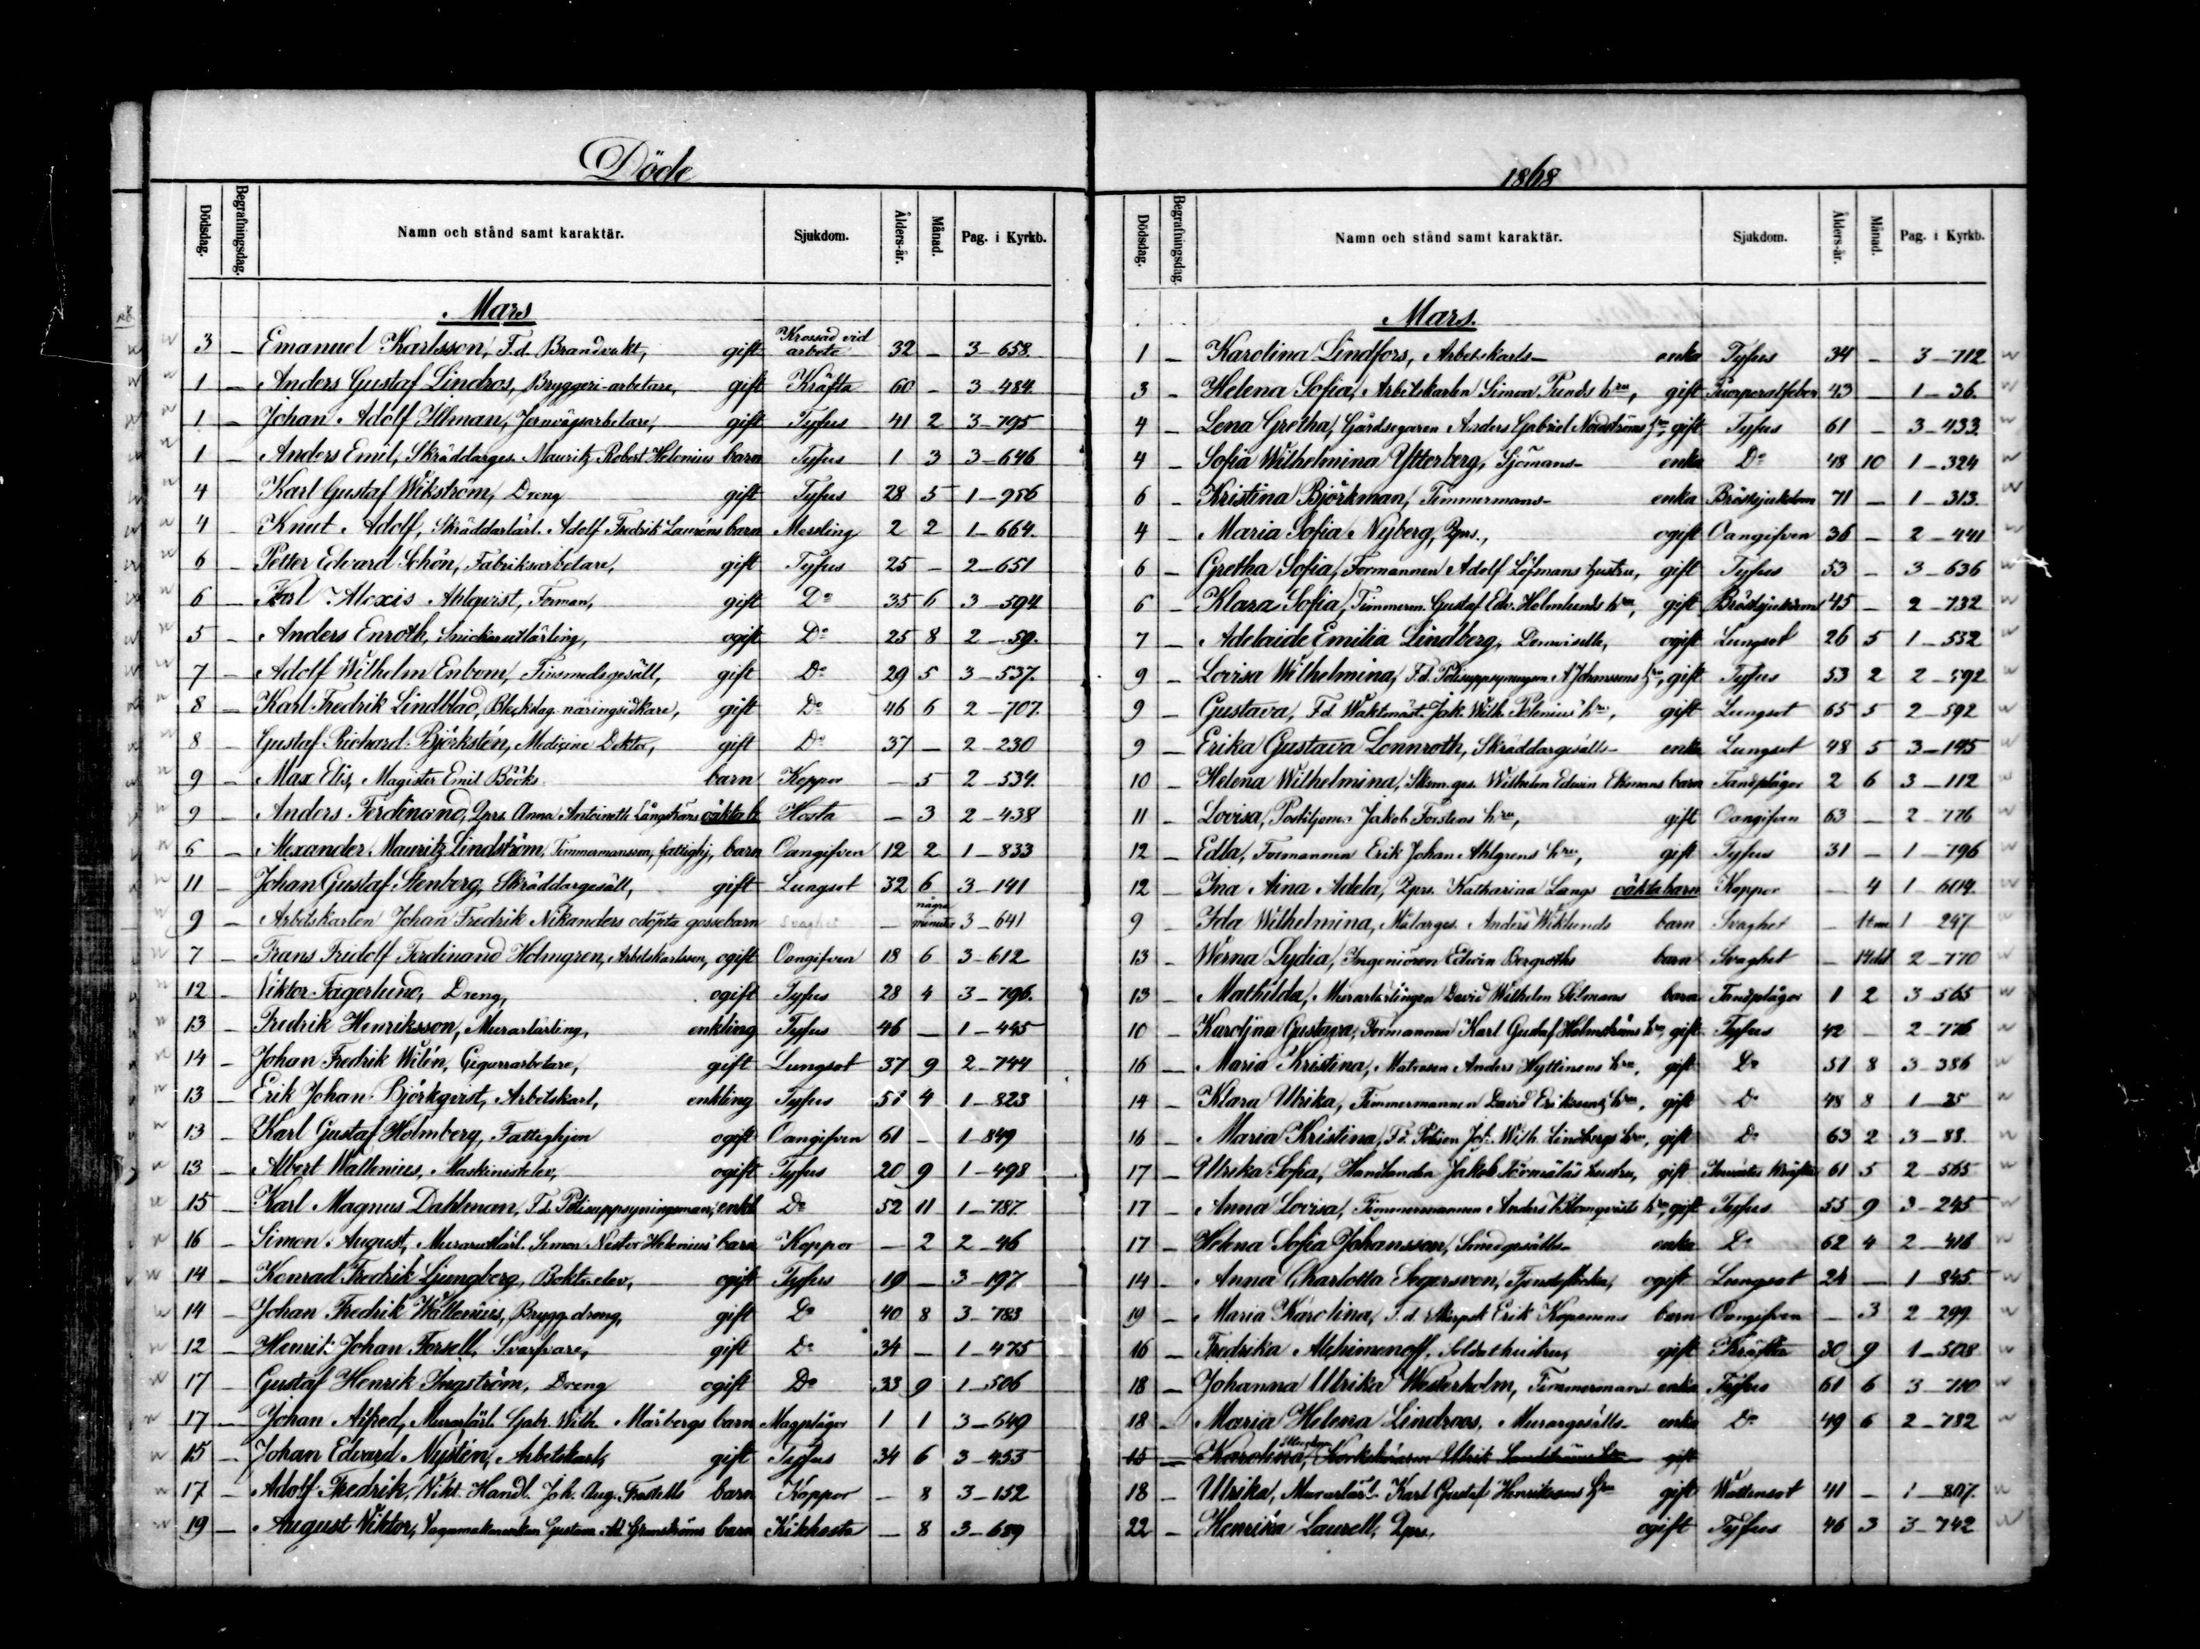 Döde
Dödsdag. Begrafningsdag. Namn och stånd samt karaktär. Sjukdom. Ålders-år. Månad. Pag. i Kyrkb.
Mars
3 — Emanuel Karlsson, F.d. Brandvakt, gift Krossad vid arbete 32 — 3—658
1 — Anders Gustaf Lindros, Bryggeri-arbetare, gift Kräfta 60 — 3—484.
1 — Johan Adolf Illman, Jernvägsarbetare, gift Tyfus 41 2 3—795
1 — Anders Emil, Skräddarges. Mauritz Robert Helenius barn Tyfus 1 3 3—646
4 — Karl Gustaf Wikström, Dreng gift Tyfus 28 5 1—256
4 — Knut Adolf, Skräddarlärl. Adolf Fredrik Lauréns barn Messling 2 2 1—664.
6 — Petter Edvard Schön, Fabriksarbetare, gift Tyfus 25 — 2—651
6 — Karl Alexis Ahlqvist, Forman, gift Do 35 6 3—594
5 — Anders Enroth, Snickarutlärling, ogift Do 25 8 2—59.
7 — Adolf Wilhelm Enbom, Finsmedsgesäll, gift Do 29 5 3—537.
8 — Karl Fredrik Lindblad, Bleckslag. näringsidkare, gift Do 46 6 2—707.
8 — Gustaf Richard Björkstén, Medicine Doktor, gift Do 37 — 2—230
9 — Max Elis, Magister Emil Bööks barn Koppor — 5 2—534.
9 — Anders Ferdinand, Pigs. Anna Antoinette Långströms oäkta b. Hosta — 3 2—438
6 — Alexander Mauritz Lindström, Timmermansson, fattighj. barn Oangifven 12 2 1—833
11 — Johan Gustaf Stenberg, Skräddargesäll, gift Lungsot 32 6 3—141
9 — Arbetskarlen Johan Fredrik Nikanders odöpta gossebarn Svaghet — några minuter 3—641
7 — Frans Fridolf Ferdinand Holmgren, Arbetskarlsson, ogift Oangifven 18 6 3—612
12 — Viktor Fagerlund, Dreng, ogift Tyfus 28 4 3—796.
13 — Fredrik Henriksson, Murarlärling, enkling Tyfus 46 — 1—445
14 — Johan Fredrik Wilén, Cigarrarbetare, gift Lungsot 37 9 2—744
13 — Erik Johan Björkqvist, Arbetskarl, enkling Tyfus 51 4 1—823
13 — Karl Gustaf Holmberg, Fattighjon ogift Oangifven 61 — 1 849
13 — Albert Wallenius, Maskinistelev, ogift Tyfus 20 9 1—498
15 — Karl Magnus Dahlman, F.d. Polisuppsyningsman, enkl Do 52 11 1—787.
16 — Simon August, Murarutlärl. Simon Nestor Helenius' barn Koppor — 2 2—46
14 — Konrad Fredrik Ljungberg, Boktr. elev, ogift Tyfus 19 — 3—197
14 — Johan Fredrik Wallenius, Brygg. dreng, gift Do 40 8 3—783
12 — Henrik Johan Forsell, Svarfvare, gift Do 34 — 1—475
17 — Gustaf Henrik Ingström, Dreng ogift Do 33 9 1—506
17 — Johan Alfred, Murarlärl. Gabr. Wilh. Mårbergs barn Magplågor 1 1 3—649
15 — Johan Edvard Nystén, Arbetskarl, gift Tyfus 34 6 3—453
17 — Adolf Fredrik, Vikt. Handl. Joh. Aug. Fredells barn Koppor — 8 3—152
19 — August Viktor, Vagnmakarenkan Gustava Ad. Grunströms barn Kikhosta — 8 3—689
1868
Dödsdag. Begrafningsdag. Namn och stånd samt karaktär. Sjukdom. Ålders-år. Månad. Pag. i Kyrkb.
Mars.
1 — Karolina Lindfors, Arbetskarls— enka Tyfus 34 — 3—712
3 — Helena Sofia, Arbetskarlen Simon Punds hru, gift Puerperalfeber 43 — 1—36.
4 — Lena Gretha, Gårdsegaren Anders Gabriel Nordströms hru, gift Tyfus 61 — 3—433.
4 — Sofia Wilhelmina Ytterberg, Sjömans— enka Do 48 10 1—324
6 — Kristina Björkman, Timmermans— enka Bröstsjukdom 71 — 1—313.
4 — Maria Sofia Nyberg, Pigs., ogift Oangifven 36 — 2—441
6 — Gretha Sofia, Formannen Adolf Löfmans hustru, gift Tyfus 53 — 3—636
6 — Klara Sofia, Timmerm. Gustaf Edv. Holmlunds hru, gift Bröstsjukdom 45 — 2—732
7 — Adelaide Emilia Lindberg, Demoiselle, ogift Lungsot 26 5 1—532
9 — Lovisa Wilhelmina, F.d. Polisuppsyningsm. A Johanssons hru, gift Tyfus 53 2 2—592
9 — Gustava, F.d. Waktmäst. Jak. Wilh. Polenius' hru, gift Lungsot 65 5 2—592
9 — Erika Gustava Lönnroth, Skräddargesälls— enka Lungsot 48 5 3—195
10 — Helena Wilhelmina, Skom. ges. Wilhelm Edvin Ekmans barn Tandplågor 2 6 3—112
11 — Lovisa, Postiljonen Jakob Forstens hru, gift Oangifven 63 — 2—776
12 — Edla, Formannen Erik Johan Ahlgrens hru, gift Tyfus 31 — 1—796
12 — Ina Aina Adela, Pigs. Katharina Langs oäkta barn Koppor — 4 1—604.
9 — Ida Wilhelmina, Målarges. Anders Wiklunds barn Svaghet — 1 tme 1—247
13 — Werna Lydia, Ingeniören Edvin Bergroths barn Svaghet — 14 dd 2—770
13 — Mathilda, Murarlärlingen David Wilhelm Ekmans barn Tandplågor 1 2 3—565
10 — Karolina Gustava, Formannen Karl Gustaf Holmströms hru, gift Tyfus 42 — 2—776
16 — Maria Kristina, Matrosen Anders Hyttinens hru, gift Do 51 8 3—386
14 — Klara Ulrika, Timmermannen David Erikssons hru, gift Do 48 8 1—25
16 — Maria Kristina, F.d. Polisen Joh. Wilh. Lindbergs hru, gift Do 63 2 3—88.
17 — Ulrika Sofia, Handlanden Jakob Törmäläs hustru, gift Kräfta 61 5 2—565
17 — Anna Lovisa, Timmermannen Anders Blomqvists hru, gift Tyfus 55 9 3—245
17 — Helena Sofia Johansson, Smedgesälls— enka Do 62 4 2—418
14 — Anna Charlotta Segersven, Tjensteflicka, ogift Lungsot 24 — 1—845
19 — Maria Karolina, F.d. Erik Koponens barn Oangifven — 3 2—299
16 — Fredrika Alchimenoff, Soldathustru, gift Kräfta 30 9 1—508
18 — Johanna Ulrika Westerholm, Timmermans enka Tyfus 61 6 3—710
18 — Maria Helena Lindroos, Murargesälls— enka Do 49 6 2—782
15 — Karolina, Ulrik Lundströms hru gift
18 — Ulrika, Murarlärl. Karl Gustaf Henrikssons hru gift Wattensot 41 — 1—807.
22 — Henrika Laurell, Pigs. ogift Tyfus 46 3 3—742